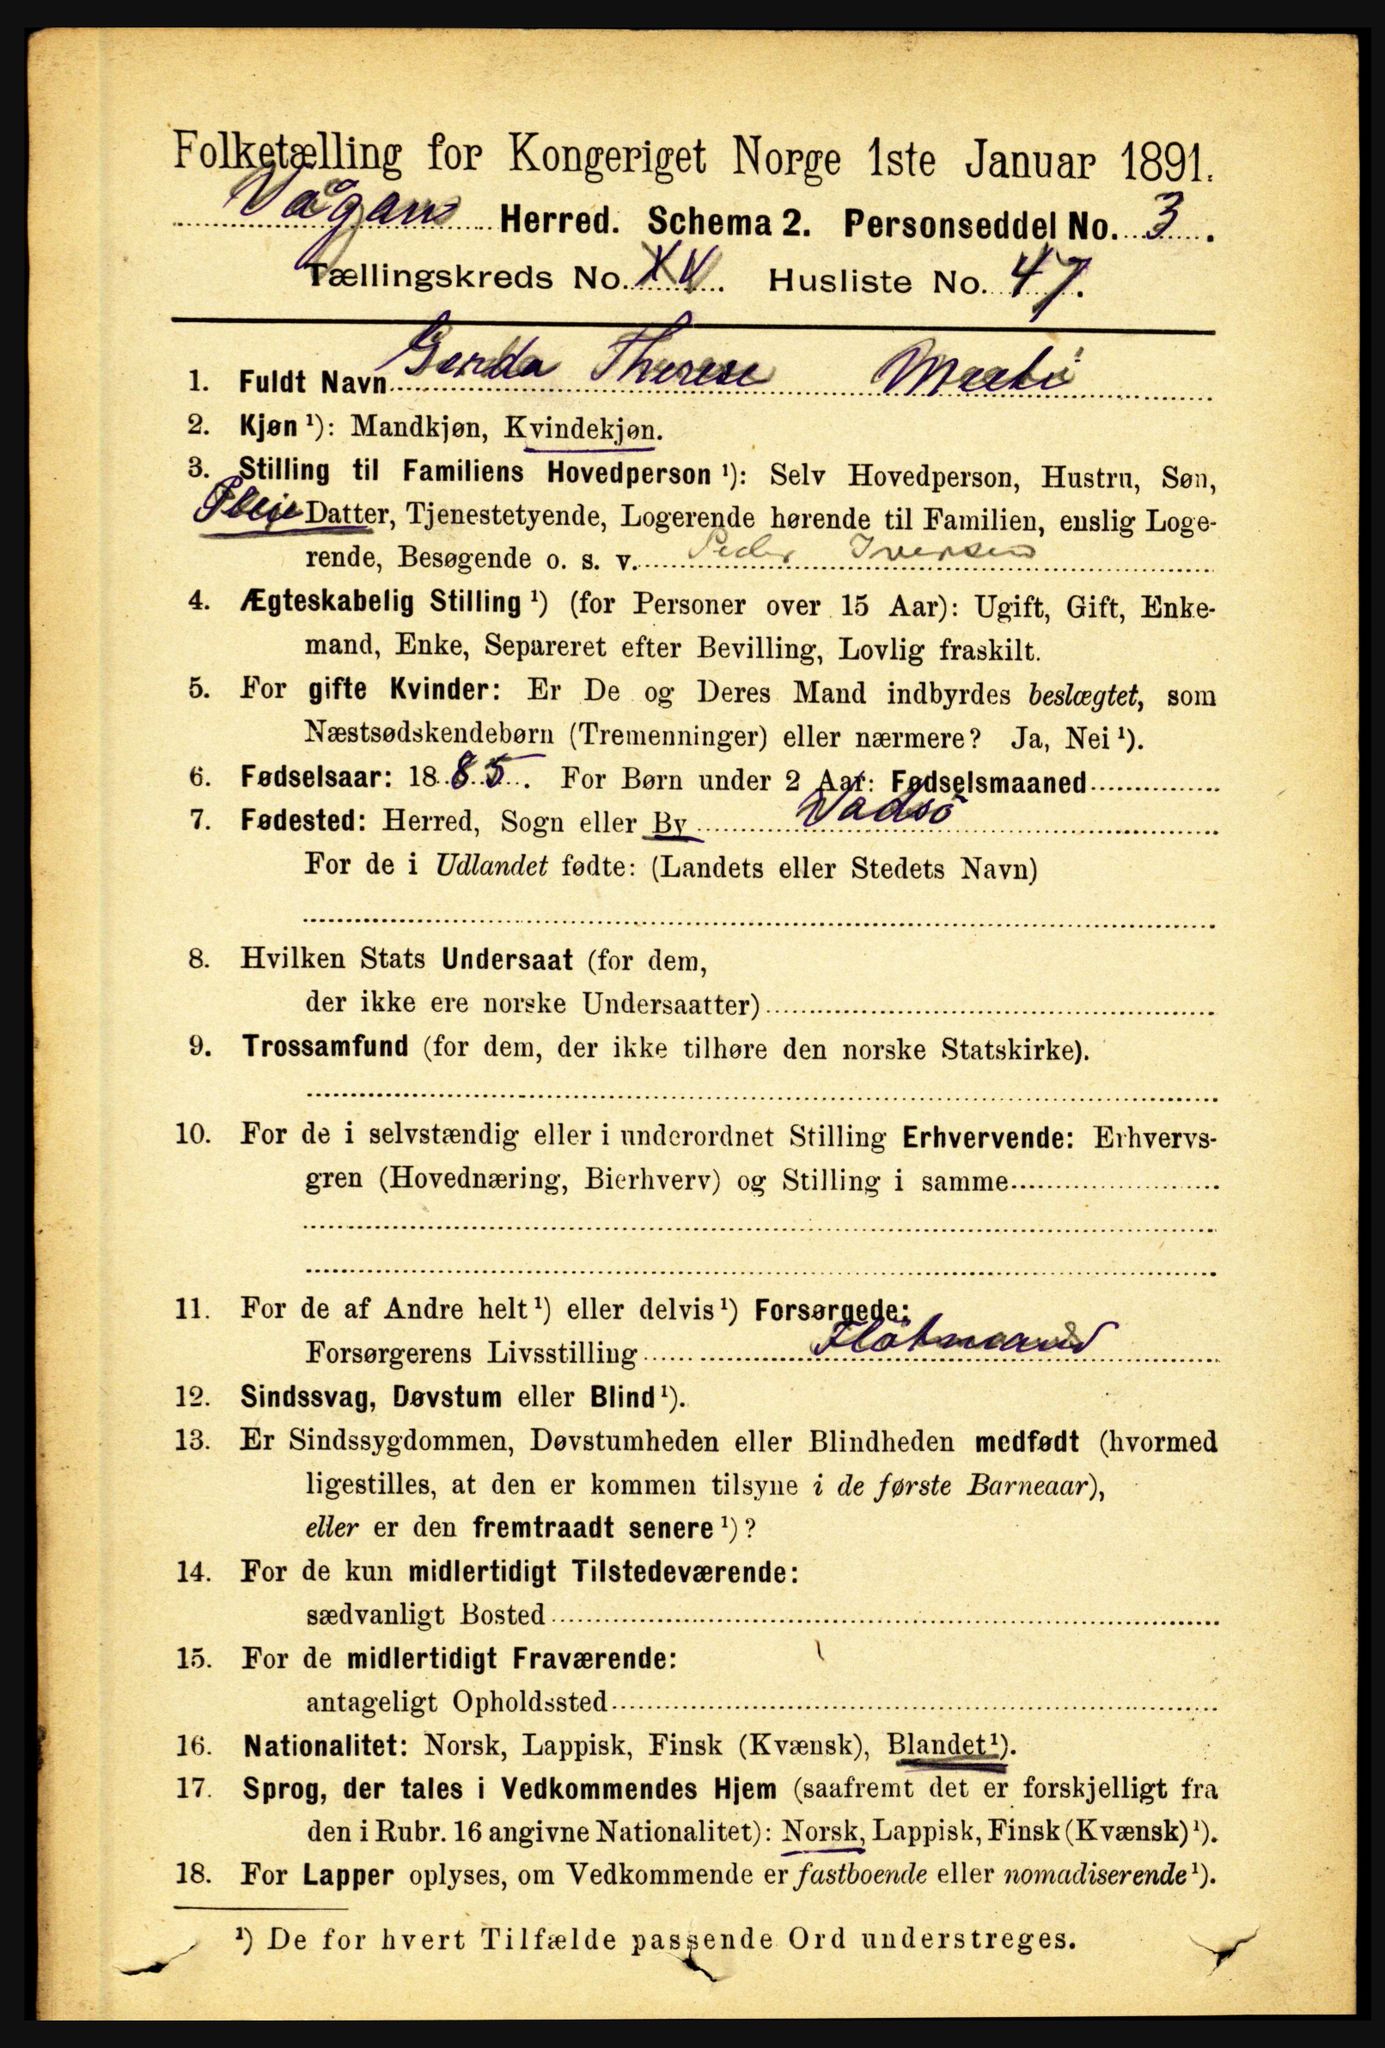 Folketælling for Kongeriget Norge 1ste Januar 1891.
Vågan Herred. Schema 2. Personseddel No. 3.
Tællingskreds No. XV. Husliste No. 47.
1. Fuldt Navn Gerda Therese
2. Kjøn ¹): Mandkjøn, Kvindekjøn.
3. Stilling til Familiens Hovedperson ¹): Selv Hovedperson, Hustru, Søn,
Pleje Datter, Tjenestetyende, Logerende hørende til Familien, enslig Loge-
rende, Besøgende o. s. v. Peder Iversen
4. Ægteskabelig Stilling ¹) (for Personer over 15 Aar): Ugift, Gift, Enke-
mand, Enke, Separeret efter Bevilling, Lovlig fraskilt.
5. For gifte Kvinder: Er De og Deres Mand indbyrdes beslægtet, som
Næstsødskendebørn (Tremenninger) eller nærmere? Ja, Nei ¹).
6. Fødselsaar: 1885. For Børn under 2 Aar: Fødselsmaaned
7. Fødested: Herred, Sogn eller By Vadsö
For de i Udlandet fødte: (Landets eller Stedets Navn)
8. Hvilken Stats Undersaat (for dem,
der ikke ere norske Undersaatter)
9. Trossamfund (for dem, der ikke tilhøre den norske Statskirke).
10. For de i selvstændig eller i underordnet Stilling Erhvervende: Erhvervs-
gren (Hovednæring, Bierhverv) og Stilling i samme
11. For de af Andre helt ¹) eller delvis ¹) Forsørgede:
Forsørgerens Livsstilling Flötmand
12. Sindssvag, Døvstum eller Blind ¹).
13. Er Sindssygdommen, Døvstumheden eller Blindheden medfødt (hvormed
ligestilles, at den er kommen tilsyne i de første Barneaar),
eller er den fremtraadt senere ¹)?
14. For de kun midlertidigt Tilstedeværende:
sædvanligt Bosted
15. For de midlertidigt Fraværende:
antageligt Opholdssted
16. Nationalitet: Norsk, Lappisk, Finsk (Kvænsk), Blandet ¹).
17. Sprog, der tales i Vedkommendes Hjem (saafremt det er forskjelligt fra
den i Rubr. 16 angivne Nationalitet): Norsk, Lappisk, Finsk (Kvænsk) ¹).
18. For Lapper oplyses, om Vedkommende er fastboende eller nomadiserende ¹).
¹) De for hvert Tilfælde passende Ord understreges.